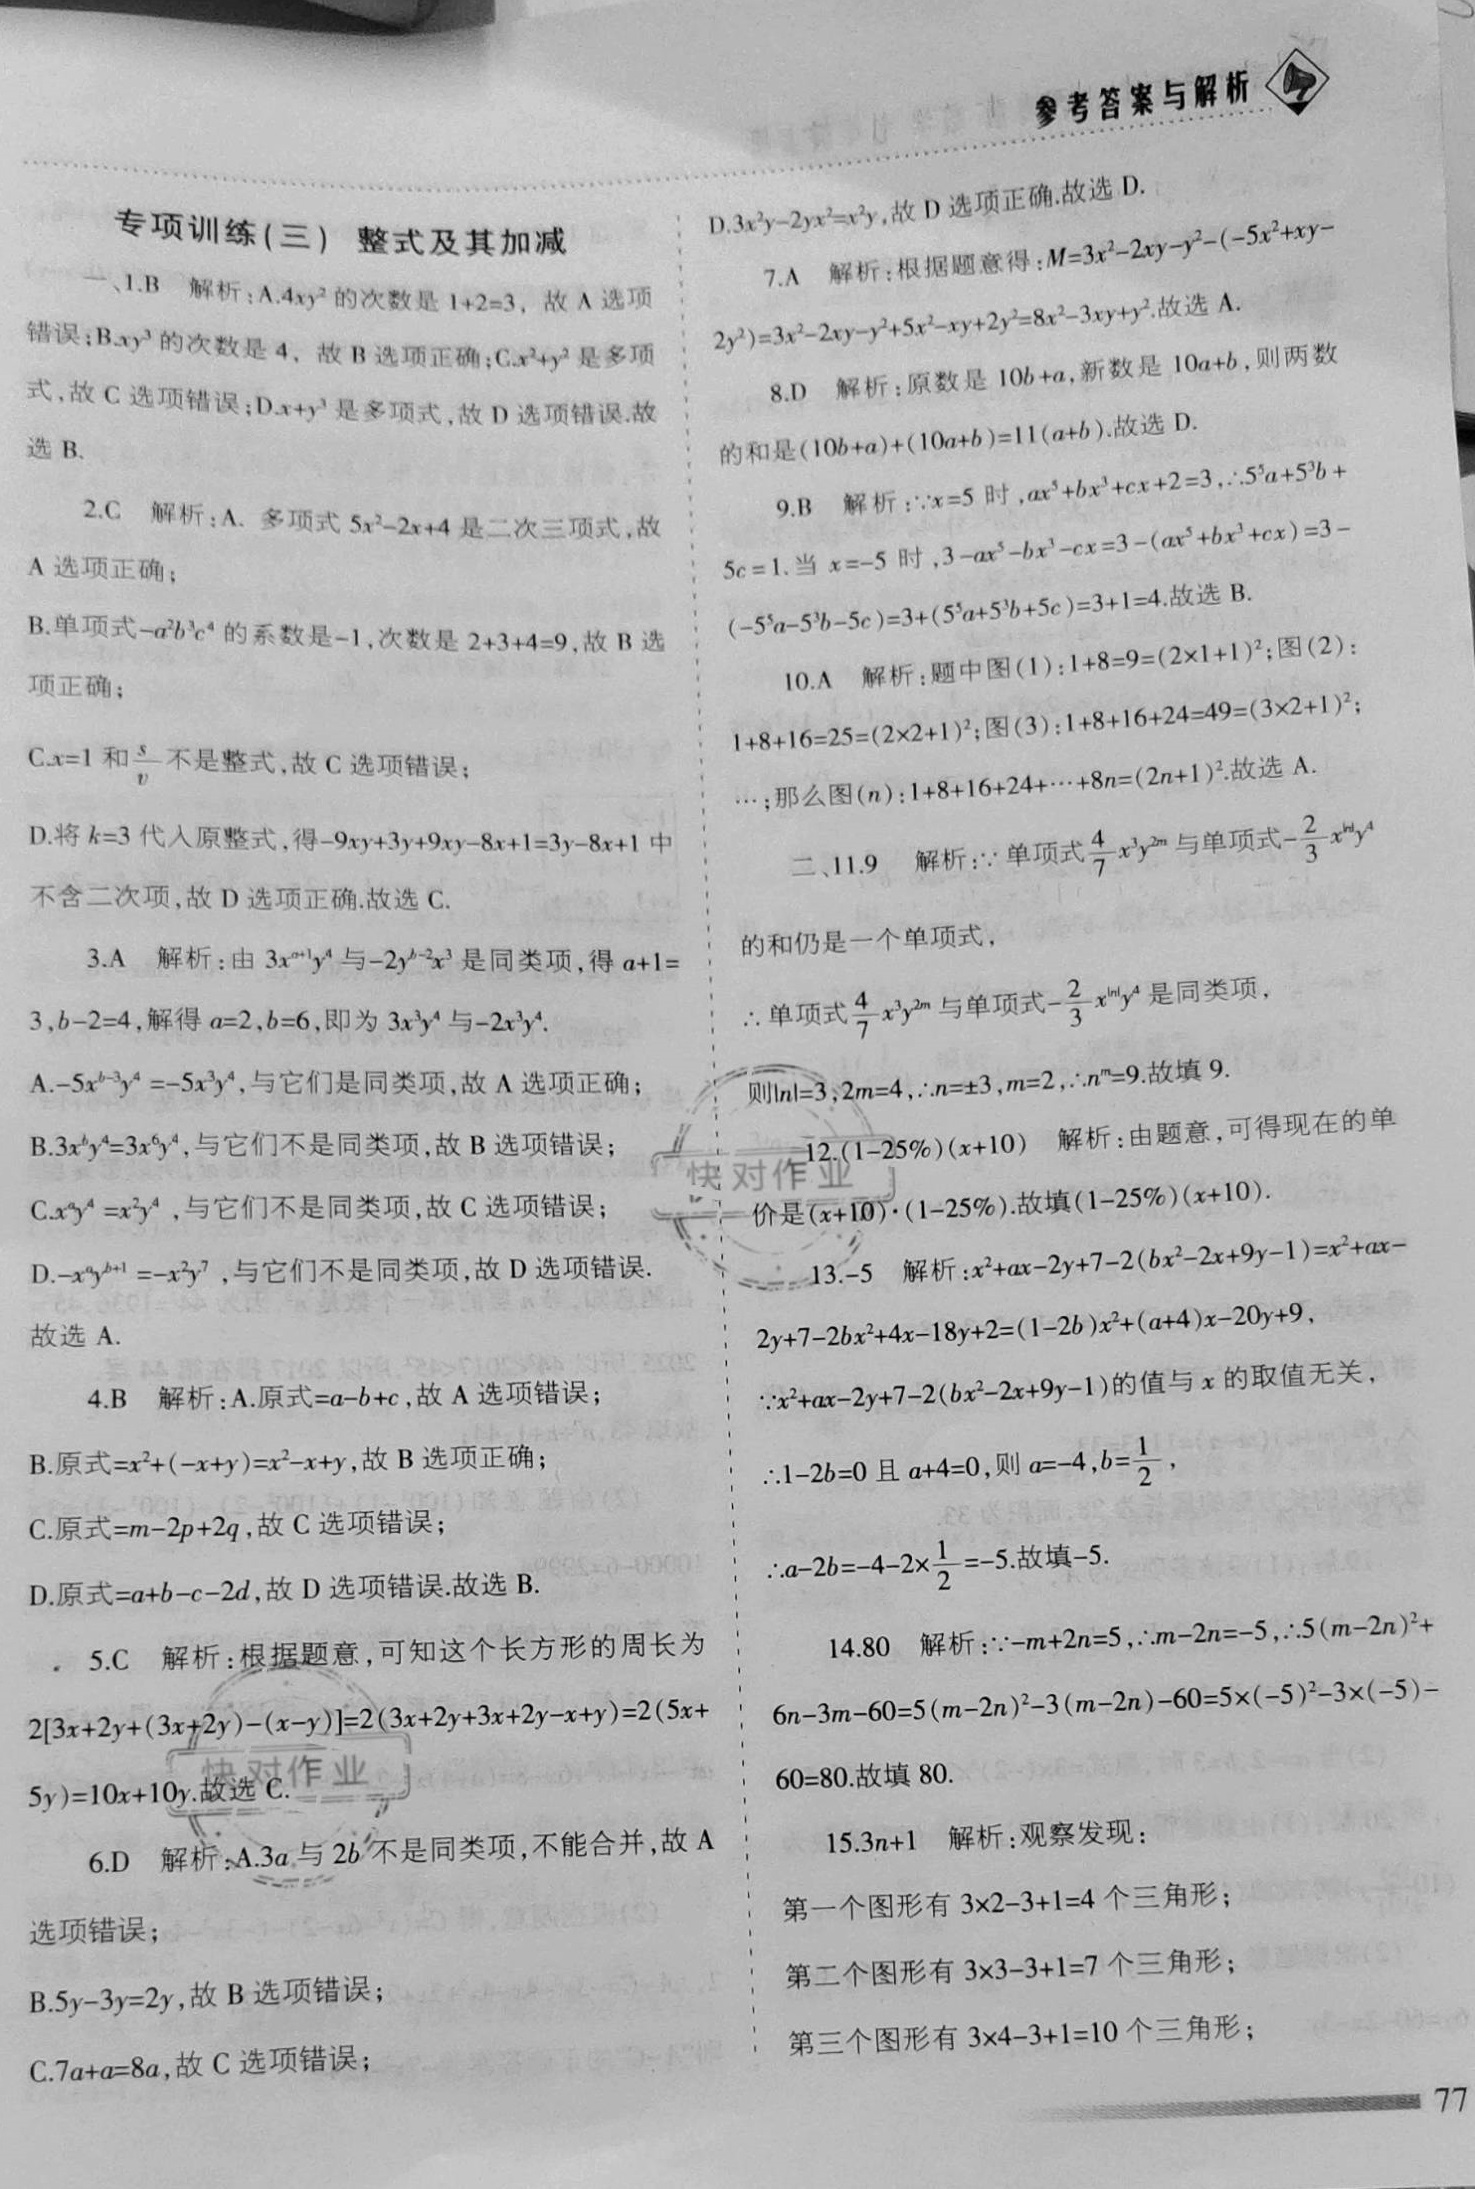 参考答案与解析
专项训练(三) 整式及其加减
一、1.B 解析:A.4xy²的次数是1+2=3, 故A选项
错误;B.xy³的次数是4, 故B选项正确;C.x²+y²是多项
式,故C选项错误;D.x+y³是多项式,故D选项错误.故
选B.
2.C 解析:A. 多项式5x²-2x+4是二次三项式,故
A选项正确;
B.单项式-a²b³c⁴的系数是-1,次数是2+3+4=9,故B选
项正确;
C.x=1和s/v不是整式,故C选项错误;
D.将k=3代入原整式,得-9xy+3y+9xy-8x+1=3y-8x+1中
不含二次项,故D选项正确.故选C.
3.A 解析:由3xᵃ⁺¹y⁴与-2yᵇ⁻²x³是同类项,得a+1=
3,b-2=4,解得a=2,b=6,即为3x³y⁴与-2x³y⁴.
A.-5xᵇ⁻³y⁴=-5x³y⁴,与它们是同类项,故A选项正确;
B.3xᵇy⁴=3x⁶y⁴,与它们不是同类项,故B选项错误;
C.xᵃy⁴=x²y⁴,与它们不是同类项,故C选项错误;
D.-xᵃyᵇ⁺¹=-x²y⁷,与它们不是同类项,故D选项错误.
故选A.
4.B 解析:A.原式=a-b+c,故A选项错误;
B.原式=x²+(-x+y)=x²-x+y,故B选项正确;
C.原式=m-2p+2q,故C选项错误;
D.原式=a+b-c-2d,故D选项错误.故选B.
5.C 解析:根据题意,可知这个长方形的周长为
2[3x+2y+(3x+2y)-(x-y)]=2(3x+2y+3x+2y-x+y)=2(5x+
5y)=10x+10y.故选C.
快对作业
6.D 解析:A.3a与2b不是同类项,不能合并,故A
选项错误;
B.5y-3y=2y,故B选项错误;
C.7a+a=8a,故C选项错误;
D.3x²y-2yx²=x²y,故D选项正确.故选D.
7.A 解析:根据题意得:M=3x²-2xy-y²-(-5x²+xy-
2y²)=3x²-2xy-y²+5x²-xy+2y²=8x²-3xy+y².故选A.
8.D 解析:原数是10b+a,新数是10a+b,则两数
的和是(10b+a)+(10a+b)=11(a+b).故选D.
9.B 解析:∵x=5时,ax⁵+bx³+cx+2=3,∴5⁵a+5³b+
5c=1.当x=-5时,3-ax⁵-bx³-cx=3-(ax⁵+bx³+cx)=3-
(-5⁵a-5³b-5c)=3+(5⁵a+5³b+5c)=3+1=4.故选B.
10.A 解析:题中图(1):1+8=9=(2×1+1)²;图(2):
1+8+16=25=(2×2+1)²;图(3):1+8+16+24=49=(3×2+1)²;
…;那么图(n):1+8+16+24+…+8n=(2n+1)².故选A.
二、11.9 解析:∵单项式4/7x³y²ᵐ与单项式-2/3x^|n|y⁴
的和仍是一个单项式,
∴单项式4/7x³y²ᵐ与单项式-2/3x^|n|y⁴是同类项,
则|n|=3,2m=4,∴n=±3,m=2,∴nᵐ=9.故填9.
12.(1-25%)(x+10) 解析:由题意,可得现在的单
快对作业
价是(x+10)·(1-25%).故填(1-25%)(x+10).
13.-5 解析:x²+ax-2y+7-2(bx²-2x+9y-1)=x²+ax-
2y+7-2bx²+4x-18y+2=(1-2b)x²+(a+4)x-20y+9,
∵x²+ax-2y+7-2(bx²-2x+9y-1)的值与x的取值无关,
∴1-2b=0且a+4=0,则a=-4,b=1/2,
∴a-2b=-4-2×1/2=-5.故填-5.
14.80 解析:∵-m+2n=5,∴m-2n=-5,∴5(m-2n)²+
6n-3m-60=5(m-2n)²-3(m-2n)-60=5×(-5)²-3×(-5)-
60=80.故填80.
15.3n+1 解析:观察发现:
第一个图形有3×2-3+1=4个三角形;
第二个图形有3×3-3+1=7个三角形;
第三个图形有3×4-3+1=10个三角形;
77